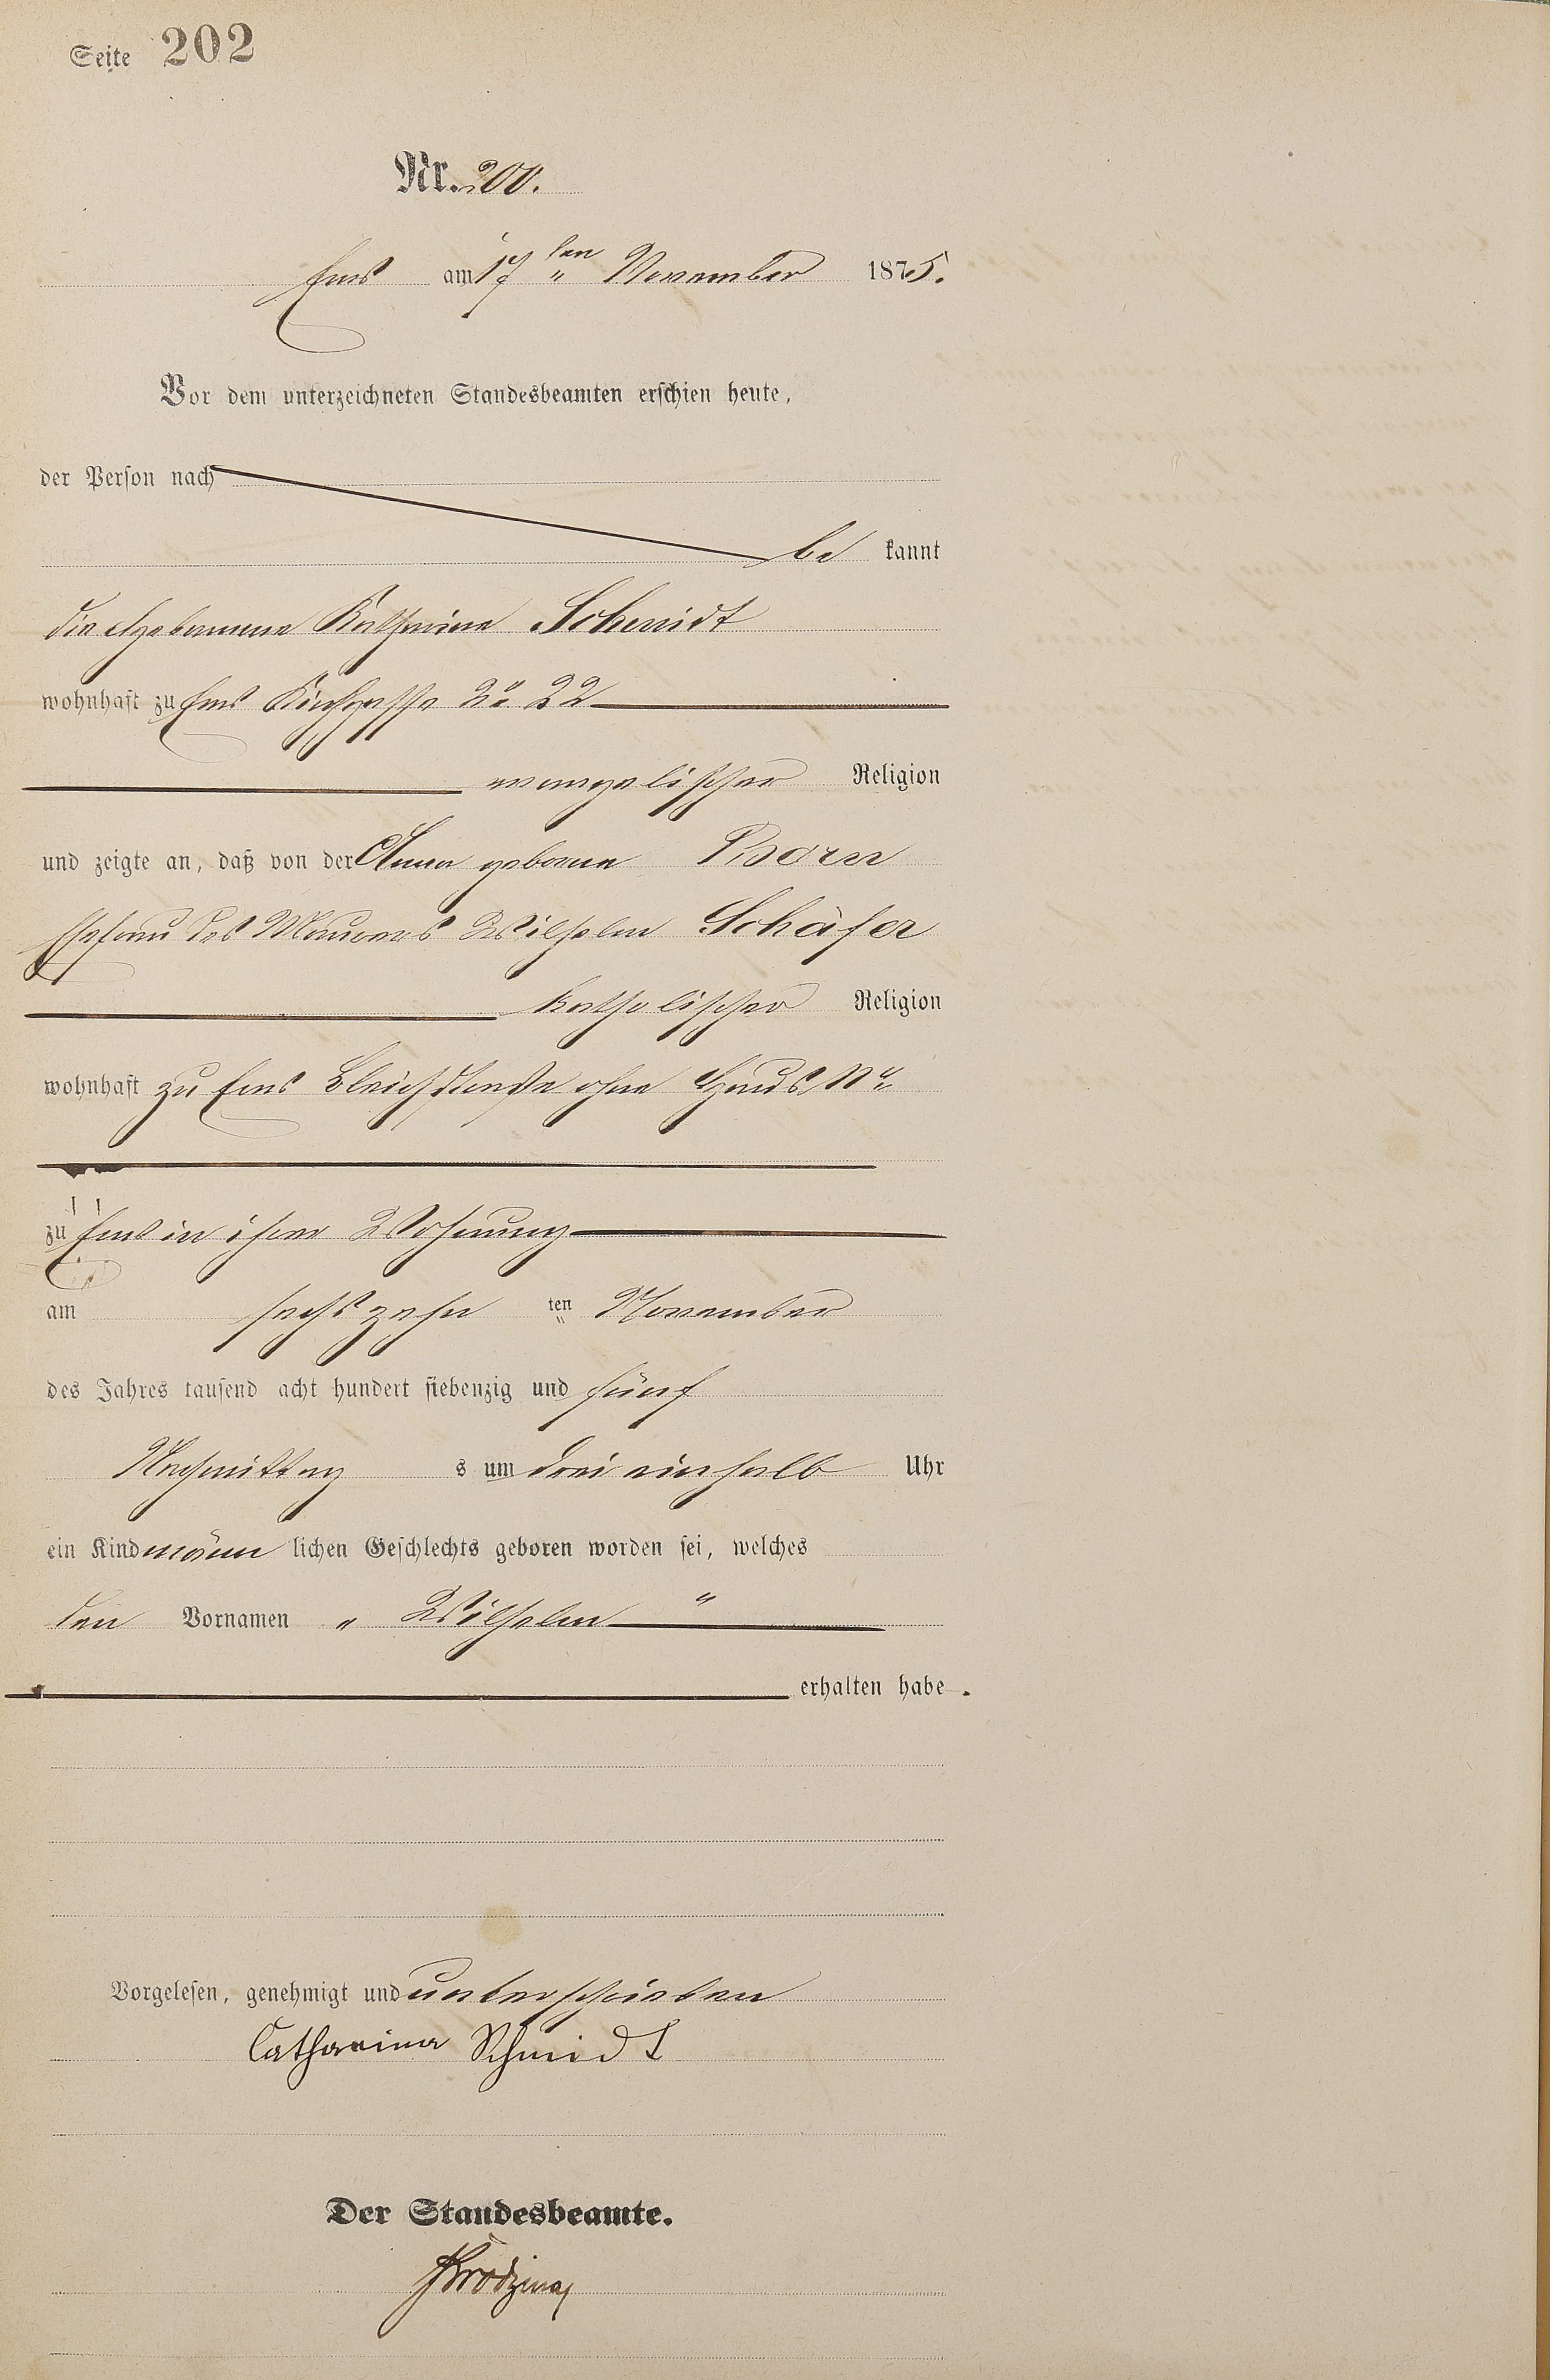 Seite 202
Nr. 200.
Ems am 17ten November 1875.
Vor dem unterzeichneten Standesbeamten erschien heute,
der Person nach
be kannt
die Hebamme Katharina Schmidt
wohnhaft zu Ems Kirchgasse No 22
evangelischer Religion
und zeigte an, daß von der Anna geborne Born
Ehefrau des Maurers Wilhelm Schäfer
katholischer Religion
wohnhaft zu Ems Bleichstraße ohne Haus No
zu Ems in ihrer Wohnung
am sechszehn ten November
des Jahres tausend acht hundert siebenzig und fünf
Nachmittag s um drei einhalb Uhr
ein Kind männ lichen Geschlechts geboren worden sei, welches
den Vornamen " Wilhelm "
erhalten habe.
Vorgelesen, genehmigt und unterschrieben
Catharina Schmidt
Der Standesbeamte.